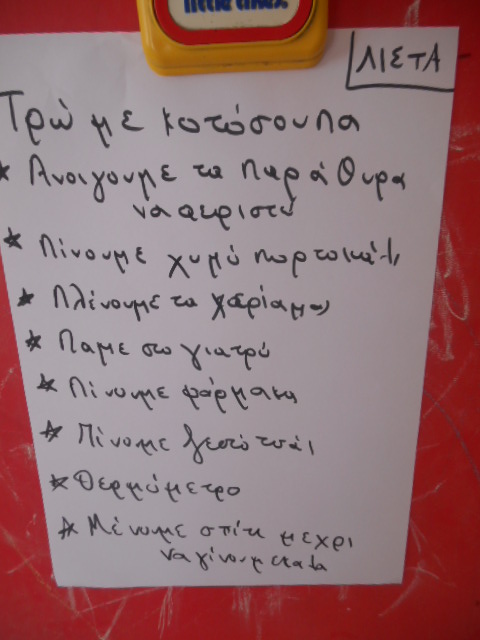 little tikes
ΛΙΣΤΑ
Τρώμε κοτόσουπα
* Ανοιγουμε τα παράθυρα
να αεριστεί
* Πίνουμε χυμό πορτοκάλι
* Πλένουμε τα χέρια μας
* Παμε στο γιατρό
* Πίνουμε φάρμακα
* Πίνομε ζεστό τσάι
* Θερμόμετρο
* Μένομε σπίτι μεχρι
να γίνουμε καλα